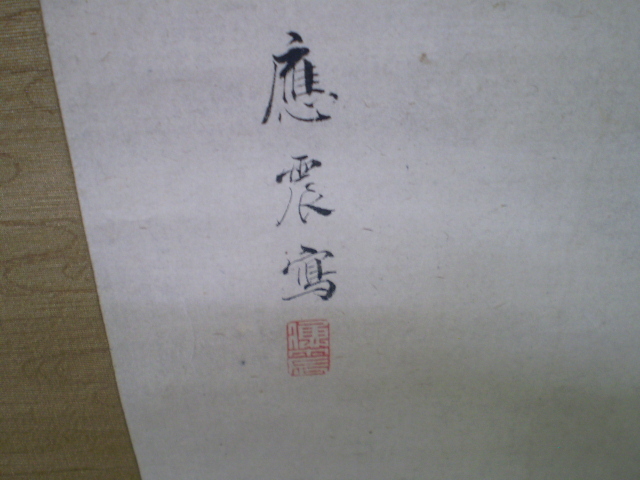 應震寫